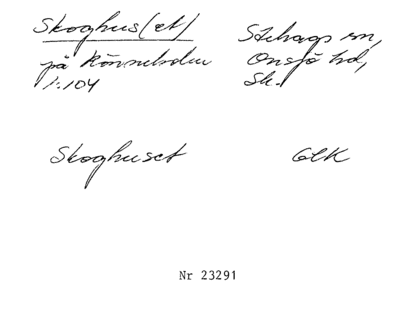 Skoghus(et)
på Rönnebden
1:104
Stehags sn,
Onsjö hd,
Sk.
Skoghuset
GEK
Nr 23291